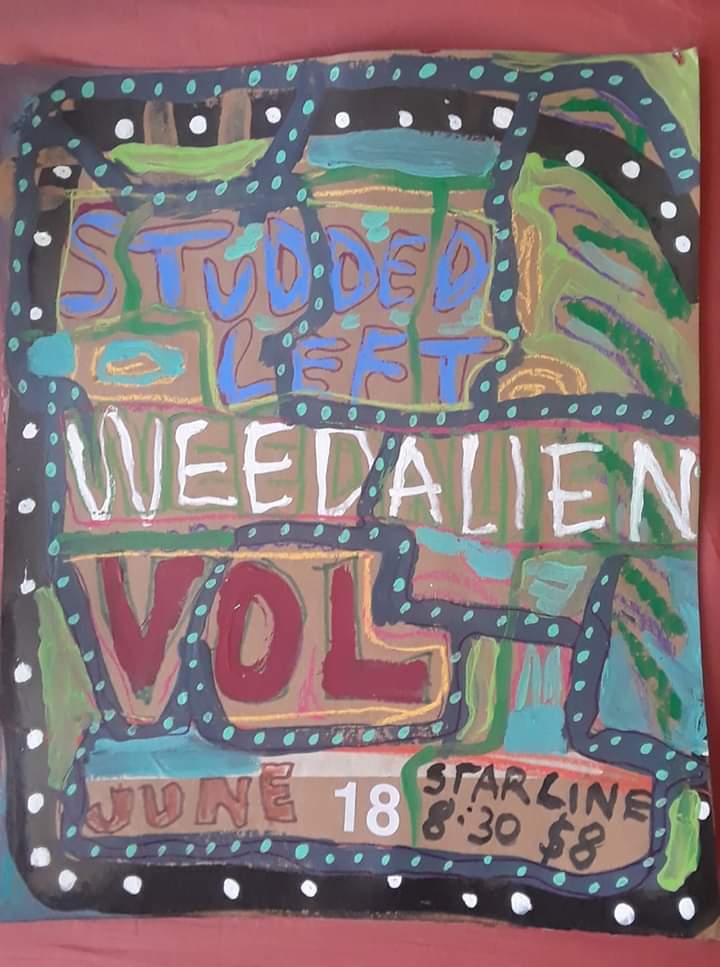 STUDDED
LEFT
WEEDALIEN
VOL
JUNE 18 STARLINE
8:30 $8